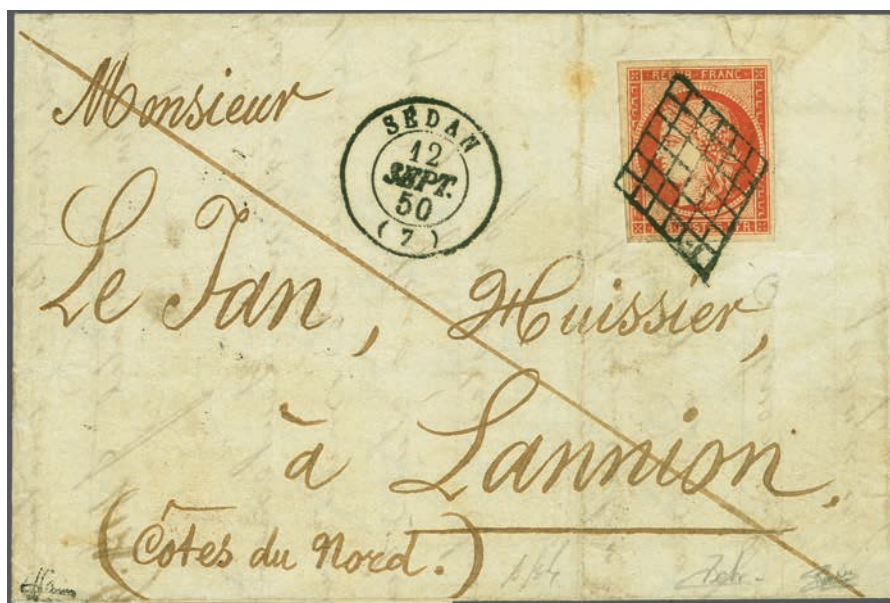 Monsieur
SEDAN
12
SEPT.
50
(7)
REPUB. FRANC.
FR
Le Jan, Huissier,
à Lannion,
(Côtes du Nord.)